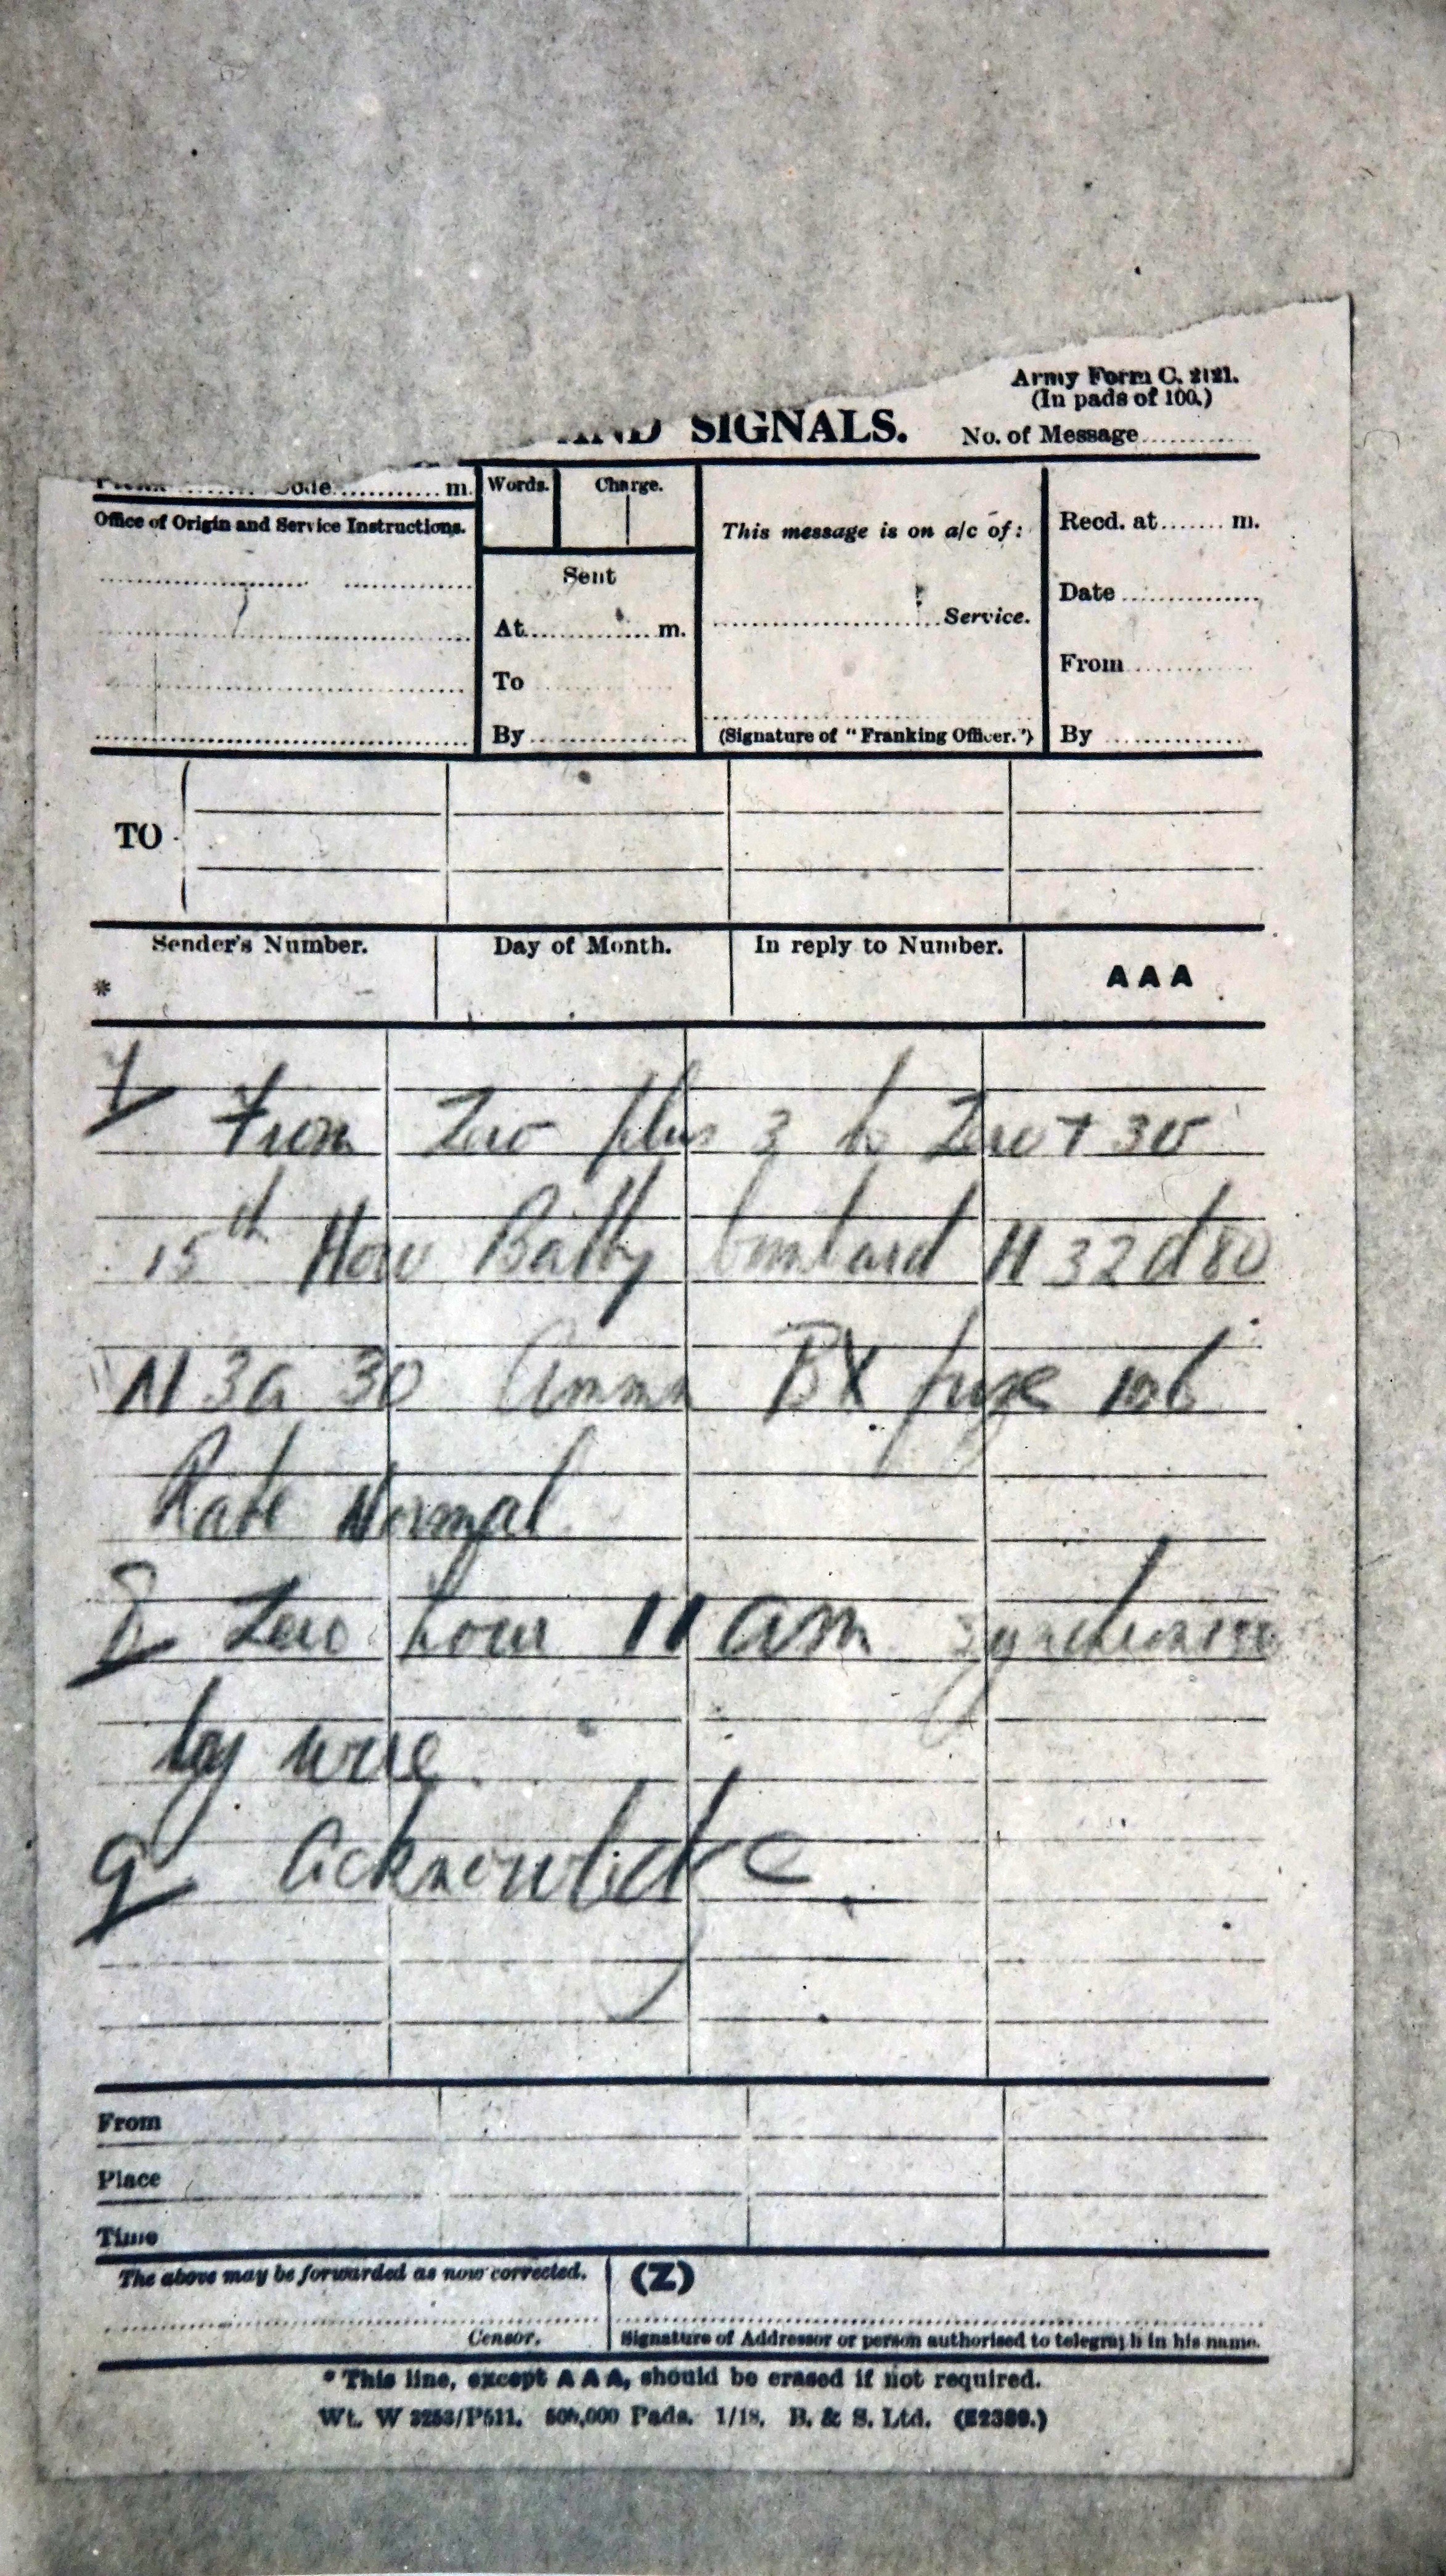 AND SIGNALS.
Army Form C. 2121.
(In pads of 100.)
No. of Message
Code m.
Words. Charge.
Office of Origin and Service Instructions.
Sent
At m.
To
By
This message is on a/c of:
Service.
(Signature of "Franking Officer.")
Recd. at m.
Date
From
By
TO
Sender's Number. Day of Month. In reply to Number. AAA
*
7 From Zero plus 3 to Zero + 30
15th How Batty bombard H 32 d 80
N 3a 30 Ammn BX fuze 106
Rate Normal
8 Zero hour 11 am synchronise
by wire.
9 Acknowledge
From
Place
Time
The above may be forwarded as now corrected. (Z)
Censor. Signature of Addressor or person authorised to telegraph in his name.
* This line, except AAA, should be erased if not required.
Wt. W 3253/P511. 500,000 Pads. 1/18. B. & S. Ltd. (E2389.)